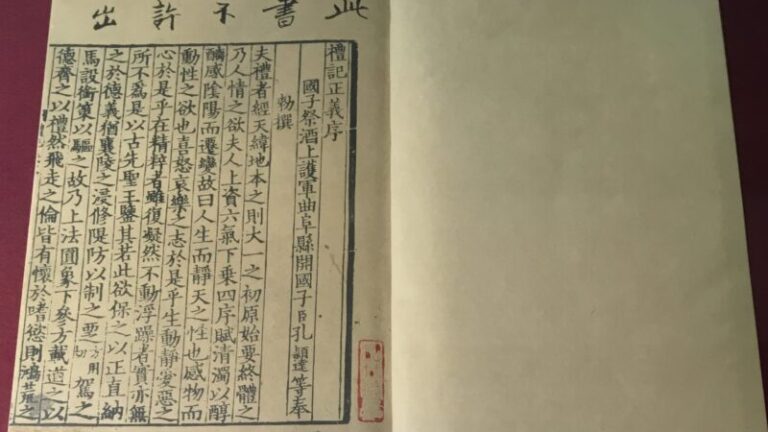 此書不許出
禮記正義序
國子祭酒上護軍曲阜縣開國子臣孔穎達等奉
勑撰
夫禮者經天緯地本之則大一之初原始要終體之
乃人情之欲夫人上資六氣下乘四序賦清濁以醇
醨感陰陽而遷變故曰人生而靜天之性也感物而
動性之欲也喜怒哀樂之志於是乎生動靜愛惡之
心於是乎在精粹者雖復凝然不動浮躁者實亦無
所不爲是以古先聖王鑒其若此欲保之以正直納
之於德義猶襄陵之浸修隄防以制之覂方用切駕之
馬設銜策以驅之故乃上法圓象下參方載道之以
德齊之以禮然飛走之倫皆有懷於嗜慾則鴻荒之